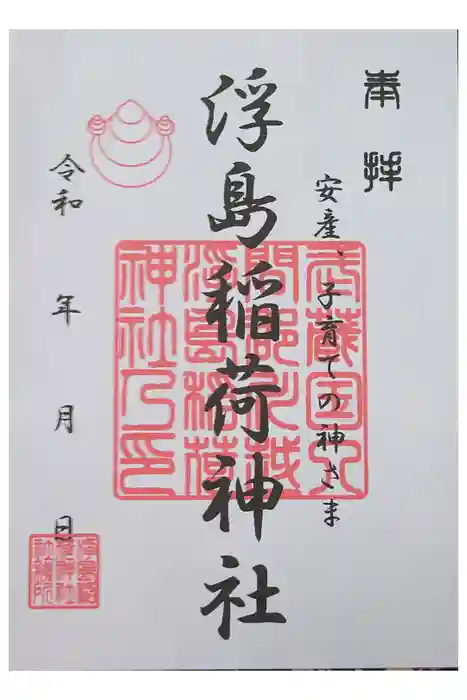 奉拝
安産、子育ての神さま
浮島稲荷神社
武蔵国入
間郡川越
浮島稲荷
神社乃印
令和 年 月 日